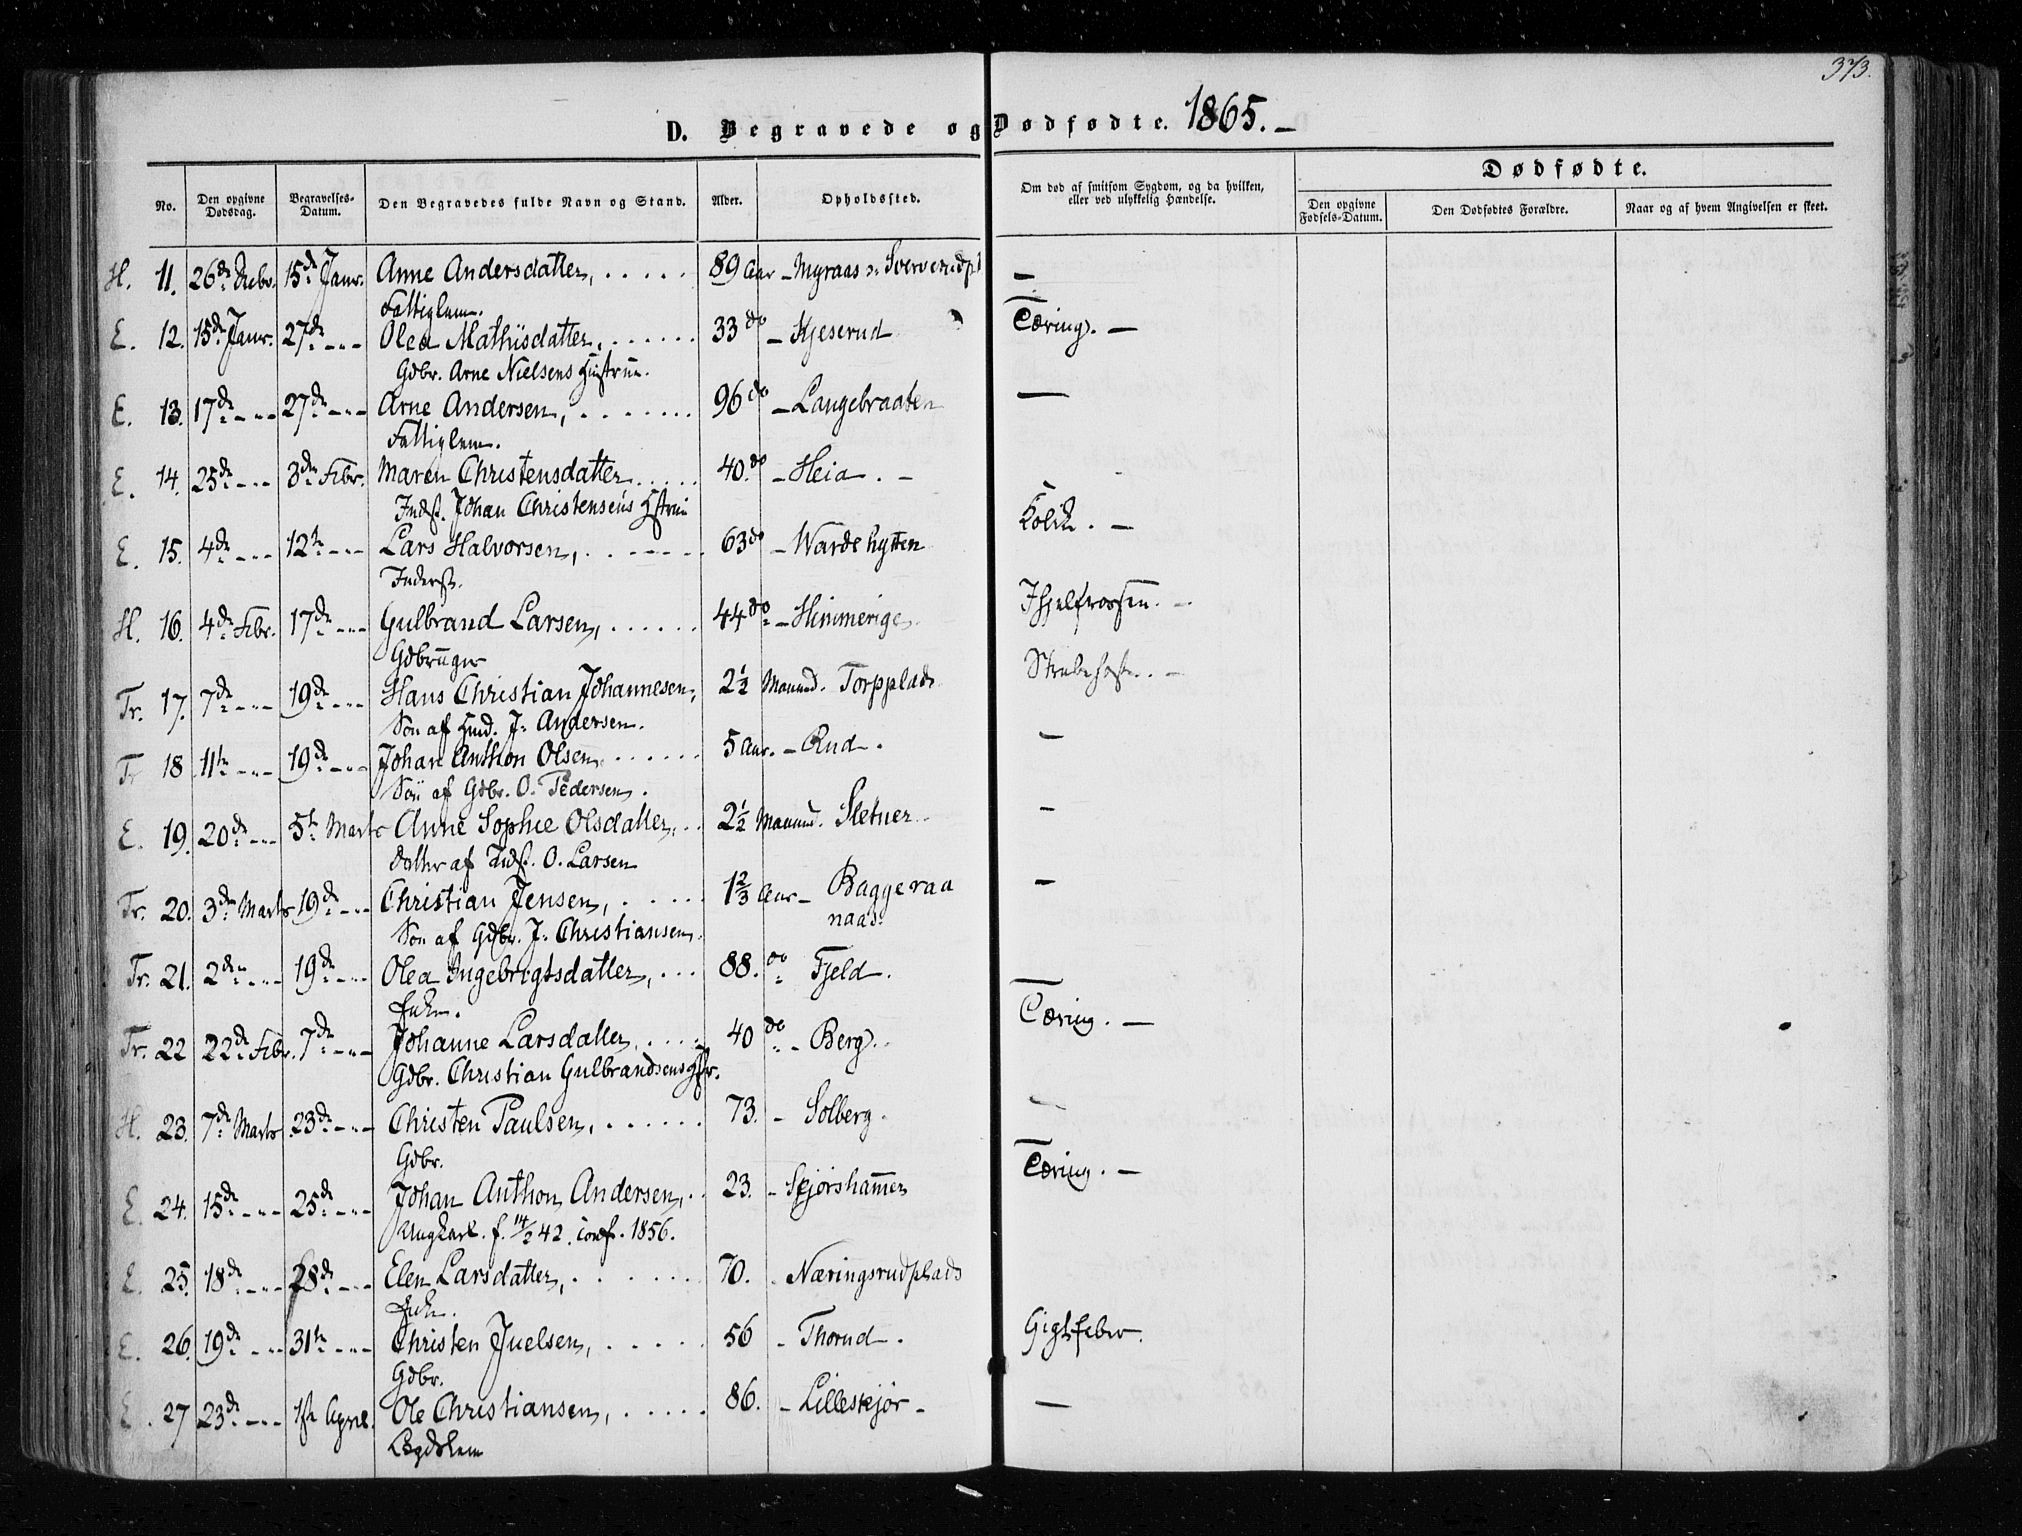 373.
D. Begravede og Dødfødte. 1865. –
No. Den opgivne Dødsdag. Begravelses-Datum. Den Begravedes fulde Navn og Stand. Alder. Opholdssted. Om død af smitsom Sygdom, og da hvilken, eller ved ulykkelig Hændelse. Dødfødte.
Den opgivne Fødsels-Datum. Den Dødfødtes Forældre. Naar og af hvem Angivelsen er skeet.
H. 11. 26de Decbr. 15de Janr. Anne Andersdatter, . . . . . 89 Aar – Myraas –
Fattiglem.
E. 12. 15de Janr. 27de - - - Olea Mathisdatter, . . . . . . 33 do – Kjeserud Tæring. –
Gdbr. Arne Nielsens Hustrue.
E. 13. 17de - - - 27de - - - Arne Andersen, . . . . . . . 96 do – Langebraaten —
Fattiglem.
E. 14. 25de - - - 3de Febr. Maren Christensdatter . . . . . 40. do – Heia . –
Indst. Johan Christensens Hstrue Kolik . –
E. 15. 4de - - - 12te - - - Lars Halvorsen, . . - - - - . 63 do – Wardehytten
Inderst.
H. 16. 4de Febr. 17de - - - Gulbrand Larsen, . . . . . . 44 do – Himmerige Ihjelfrossen. –
Gdbruger
Tr. 17. 7de - - - 19de - - - Hans Christian Johannesen, 2½ Maaned. Torpplads Strubehoste. –
Søn af Hmd. J. Andersen.
Tr 18 11te - - - 19de - - - Johan Anthon Olsen, . . . . . . 5 Aar. – Rud . –
Søn af Gdbr. O. Pedersen.
E. 19. 20de - - - 5te Marts Anne Sophie Olsdatter, . . 2½ Maaned. Sletner. –
Datter af Indst. O. Larsen
Tr. 20. 3de Marts 19de - - - Christian Jensen, . . . . . 1⅔ Aar – Baggeraa –
naas.
Søn af Gdbr. J. Christiansen.
Tr. 21. 2den - - - 19de - - - Olea Ingebrigtsdatter, . . . 88. do Fjeld .
Enke.
Tr. 22 22de Febr. 7de - - - Johanne Larsdatter, . . . . 40 do – Berg. Tæring . –
Gdbr. Christian Gulbrandsens Hstr.
H. 23. 7de Marts 23de - - - Christen Paulsen, . . . . . . 73. – Solberg . –
Gdbr.
E. 24. 15de - - - 25de - - - Johan Anthon Andersen, . . 23. – Spjørshammer Tæring . –
Ungkarl. f. 14/2 42. conf. 1856.
E. 25. 18de - - - 28de - - - Elen Larsdatter, . . . . . . . 70. – Næringsrudplads
Enke.
E. 26. 19de - - - 31te - - - Christen Juelsen, . . . . . . 56 – Thorud . Gigtfeber.
Gdbr.
E. 27 23de - - - 1ste April. Ole Christiansen, . . . . . 86. – Lilleskjør – –
Lægdslem